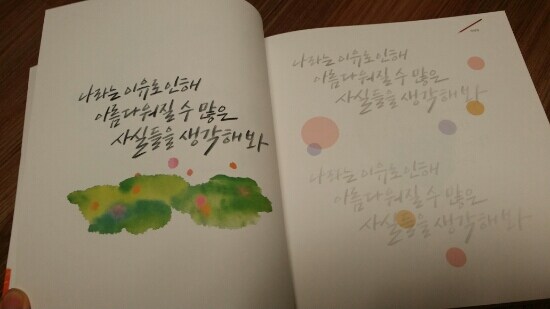 나라는 이유로 인해
아름다워질 수 많은
사실들을 생각해봐
나라는 이유로 인해
아름다워질 수 많은
사실들을 생각해봐
나라는 이유로 인해
아름다워질 수 많은
사실들을 생각해봐